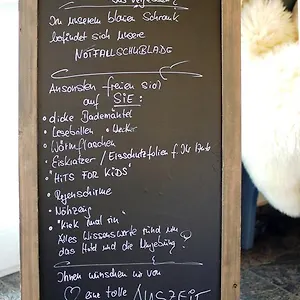 Was vergessen?
In unserem blauen Schrank
befindet sich unsere
NOTFALLSCHUBLADE
Ansonsten freuen sich
auf SIE:
• dicke Bademäntel
• Lesebrillen • Wecker
• Wärmflaschen
• Eiskratzer / Eisschutzfolien f. Ihr Auto
• "HITS FOR KIDS"
• Regenschirme
• Nähzeug
• "Kiek mal rin"
Alles Wissenswerte rund um
das Hotel und die Umgebung
Ihnen wünschen wir von
♡ eine tolle AUSZEIT